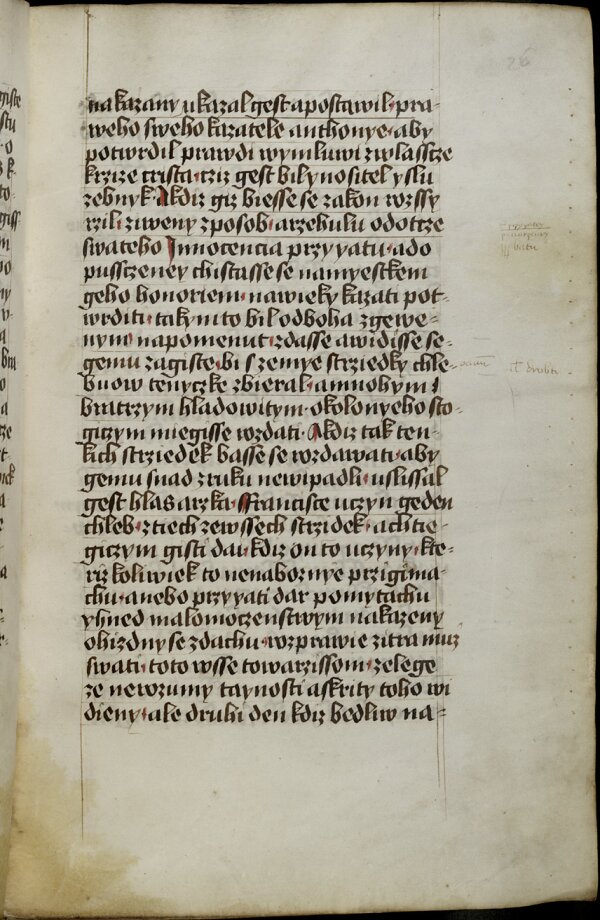 nakazany ukazal gest apostawil · pra-
weho sweho kazatele anthonye · aby
potwrdil prawdi wymluwi zwlasscze
krzize crista · crziz gest bil ynositel y slu
zebnyk · A kdiz giz biesse se zakon rozssy
rzil · ziweny zposob · arzehulu odotcze
swateho Innocencia przyyatu · ado
pussczeney chistasse se namyestkem
geho honoriem · nawieky kazati pot-
wrditi · takymto bil odboha zgewe-
nym napomenut · zdasse awidisse se-
gemu zagiste · bi s zemye strziedky chle-
buow tenyczke zbieral · amnohym
bratrzym hladowitym · okolo nyeho sto-
giczym miegisse rozdati · A kdiz tak ten-
kich strziedek basse se rozdawati · aby
gemu snad zruku newipadli · uslissal
gest hlas arzka · Ffrancisce uczyn geden
chleb · ztiech zewssech strzidek · achtie-
giczym gisti dai · kdiz on to uczyny · kte-
rziz koliwiek to nenabornye przigima-
chu · anebo przyyati dar pomytachu
yhned malomoczenstwym nakazeny
ohizdny se zdachu · rozprawie zitra muz
swati · toto wsse towarzissom · zelege
ze nerozumy taynosti a skrity toho wi
dieny · ale druhi den kdiz bedliw na-